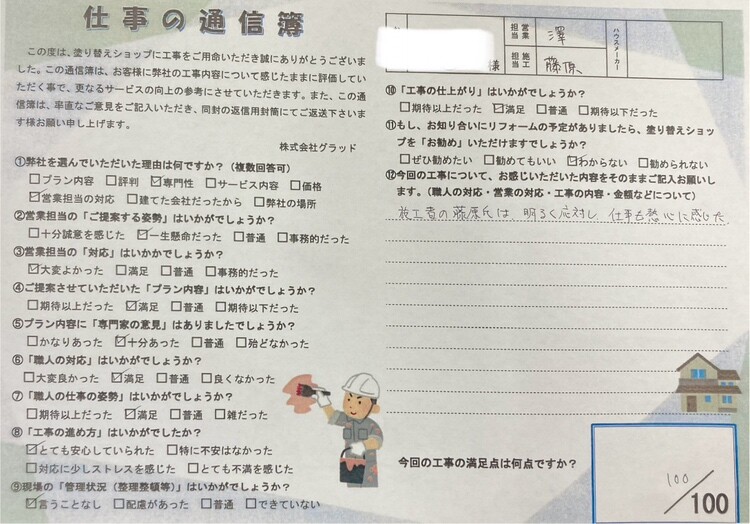 仕事の通信簿
この度は、塗り替えショップに工事をご用命いただき誠にありがとうございま
した。この通信簿は、お客様に弊社の工事内容について感じたままに評価してい
ただく事で、更なるサービスの向上の参考にさせていただきます。また、この通
信簿は、率直なご意見をご記入いただき、同封の返信用封筒にてご返送下さいま
す様お願い申し上げます。
株式会社グラッド
①弊社を選んでいただいた理由は何ですか？（複数回答可）
□プラン内容 □評判 ☑専門性 □サービス内容 □価格
☑営業担当の対応 □建てた会社だったから □弊社の場所
②営業担当の「ご提案する姿勢」はいかがでしょうか？
□十分誠意を感じた ☑一生懸命だった □普通 □事務的だった
③営業担当の「対応」はいかかでしょうか？
☑大変よかった □満足 □普通 □事務的だった
④ご提案させていただいた「プラン内容」はいかがでしょうか？
□期待以上だった ☑満足 □普通 □期待以下だった
⑤プラン内容に「専門家の意見」はありましたでしょうか？
□かなりあった ☑十分あった □普通 □殆どなかった
⑥「職人の対応」はいかがでしょうか？
□大変良かった ☑満足 □普通 □良くなかった
⑦「職人の仕事の姿勢」はいかがでしょうか？
□期待以上だった ☑満足 □普通 □雑だった
⑧「工事の進め方」はいかがでしたか？
☑とても安心していられた □特に不安はなかった
□対応に少しストレスを感じた □とても不満を感じた
⑨現場の「管理状況（整理整頓等）」はいかがでしょうか？
☑言うことなし □配慮があった □普通 □できていない
様
営業担当 澤
施工担当 藤原
ハウスメーカー
⑩「工事の仕上がり」はいかがでしょうか？
□期待以上だった ☑満足 □普通 □期待以下だった
⑪もし、お知り合いにリフォームの予定がありましたら、塗り替えショッ
プを「お勧め」いただけますでしょうか？
□ぜひ勧めたい □勧めてもいい ☑わからない □勧められない
⑫今回の工事について、お感じいただいた内容をそのままご記入お願いし
ます。（職人の対応・営業の対応・工事の内容・金額などについて）
施工者の藤原氏は、明るく応対し、仕事も熱心に感じた
今回の工事の満足点は何点ですか？
100
/100